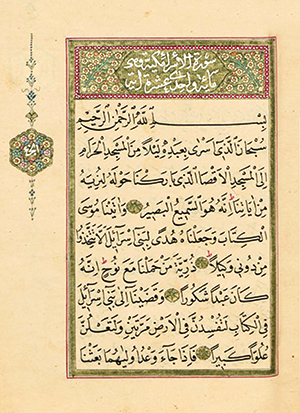 سورة الاسراء مكية وهى
مائة واحدى عشرة آية
بِسْمِ اللّٰهِ الرَّحْمٰنِ الرَّحِيمِ
سُبْحَانَ الَّذِى اَسْرٰى بِعَبْدِهٖ لَيْلًا مِنَ الْمَسْجِدِ الْحَرَامِ
اِلَى الْمَسْجِدِ الْاَقْصَا الَّذِى بَارَكْنَا حَوْلَهُ لِنُرِيَهُ
مِنْ اٰيَاتِنَا اِنَّهُ هُوَ السَّمِيعُ الْبَصِيرُ وَاٰتَيْنَا مُوسَى
الْكِتَابَ وَجَعَلْنَاهُ هُدًى لِبَنِى اِسْرَائِلَ اَلَّا تَتَّخِذُوا
مِنْ دُونِى وَكِيلًا ذُرِّيَّةَ مَنْ حَمَلْنَا مَعَ نُوحٍ اِنَّهُ
كَانَ عَبْدًا شَكُورًا وَقَضَيْنَا اِلٰى بَنِى اِسْرَائِلَ
فِى الْكِتَابِ لَتُفْسِدُنَّ فِى الْاَرْضِ مَرَّتَيْنِ وَلَتَعْلُنَّ
عُلُوًّا كَبِيرًا فَاِذَا جَاءَ وَعْدُ اُولٰيهُمَا بَعَثْنَا